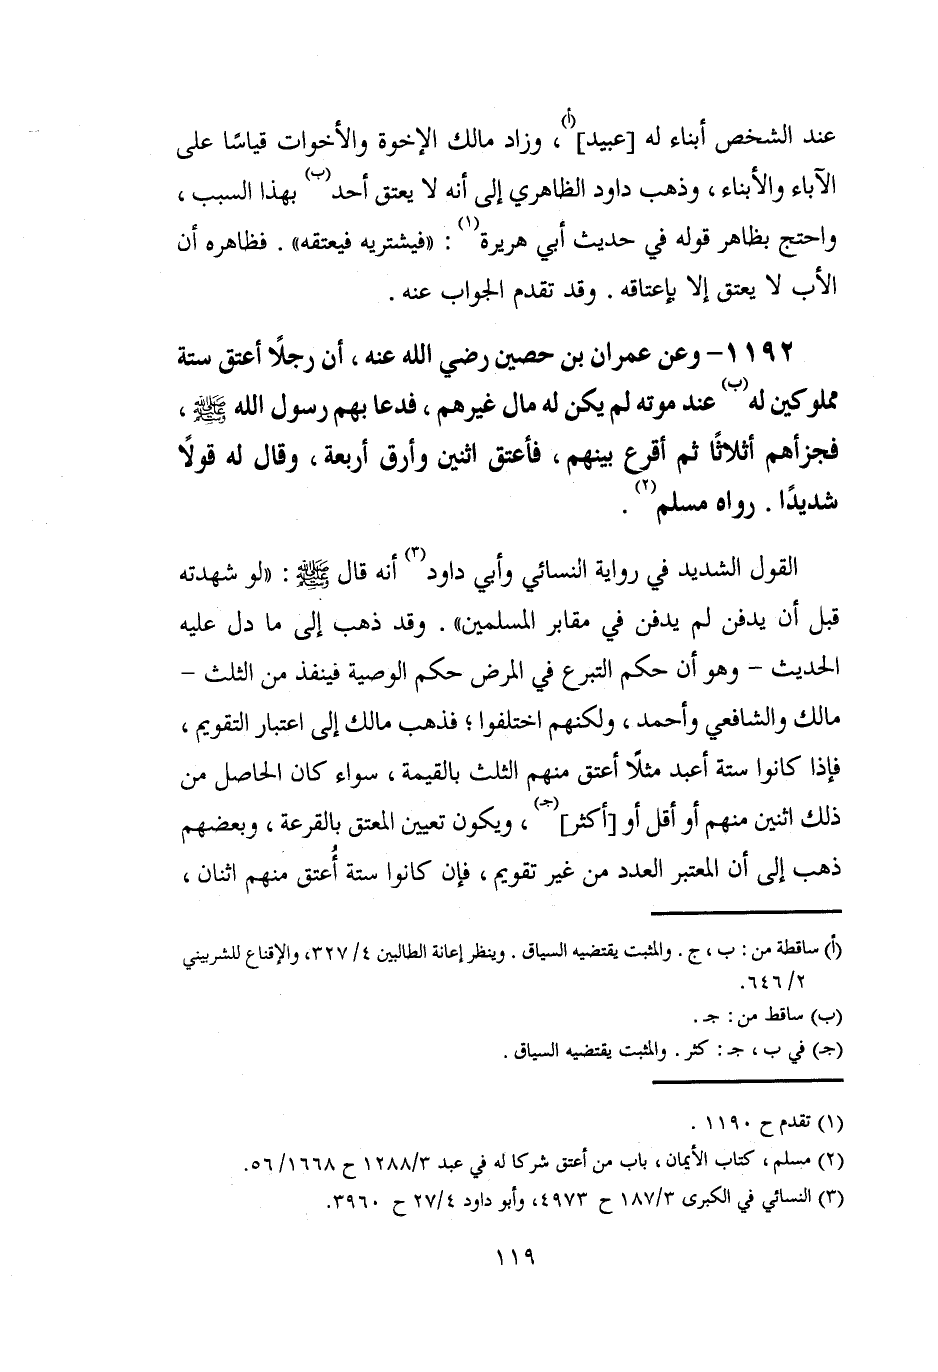 عند الشخص أبناء له [عبيد](أ)، وزاد مالك الإخوة والأخوات قياسًا على
الآباء والأبناء ، وذهب داود الظاهري إلى أنه لا يعتق أحد(ب) بهذا السبب ،
واحتج بظاهر قوله في حديث أبي هريرة(١) : «فيشتريه فيعتقه» . فظاهره أن
الأب لا يعتق إلا بإعتاقه . وقد تقدم الجواب عنه .
١١٩٢- وعن عمران بن حصين رضي الله عنه ، أن رجلًا أعتق ستة
مملوكين له(ب) عند موته لم يكن له مال غيرهم ، فدعا بهم رسول الله ﷺ ،
فجزأهم أثلاثًا ثم أقرع بينهم ، فأعتق اثنين وأرق أربعة ، وقال له قولًا
شديدًا . رواه مسلم(٢) .
القول الشديد في رواية النسائي وأبي داود(٣) أنه قال ﷺ : «لو شهدته
قبل أن يدفن لم يدفن في مقابر المسلمين» . وقد ذهب إلى ما دل عليه
الحديث - وهو أن حكم التبرع في المرض حكم الوصية فينفذ من الثلث -
مالك والشافعي وأحمد ، ولكنهم اختلفوا ؛ فذهب مالك إلى اعتبار التقويم ،
فإذا كانوا ستة أعبد مثلًا أعتق منهم الثلث بالقيمة ، سواء كان الحاصل من
ذلك اثنين منهم أو أقل أو [أكثر](جـ) ، ويكون تعيين المعتق بالقرعة ، وبعضهم
ذهب إلى أن المعتبر العدد من غير تقويم ، فإن كانوا ستة أُعتق منهم اثنان ،
(أ) ساقطة من : ب ، ج . والمثبت يقتضيه السياق . وينظر إعانة الطالبين ٤/ ٣٢٧، والإقناع للشربيني
٢/ ٦٤٦.
(ب) ساقط من : جـ .
(جـ) في ب ، جـ : كثر . والمثبت يقتضيه السياق .
(١) تقدم ح ١١٩٠ .
(٢) مسلم ، كتاب الأيمان ، باب من أعتق شركا له في عبد ١٢٨٨/٣ ح ٥٦/١٦٦٨.
(٣) النسائي في الكبرى ١٨٧/٣ ح ٤٩٧٣، وأبو داود ٢٧/٤ ح ٣٩٦٠.
١١٩